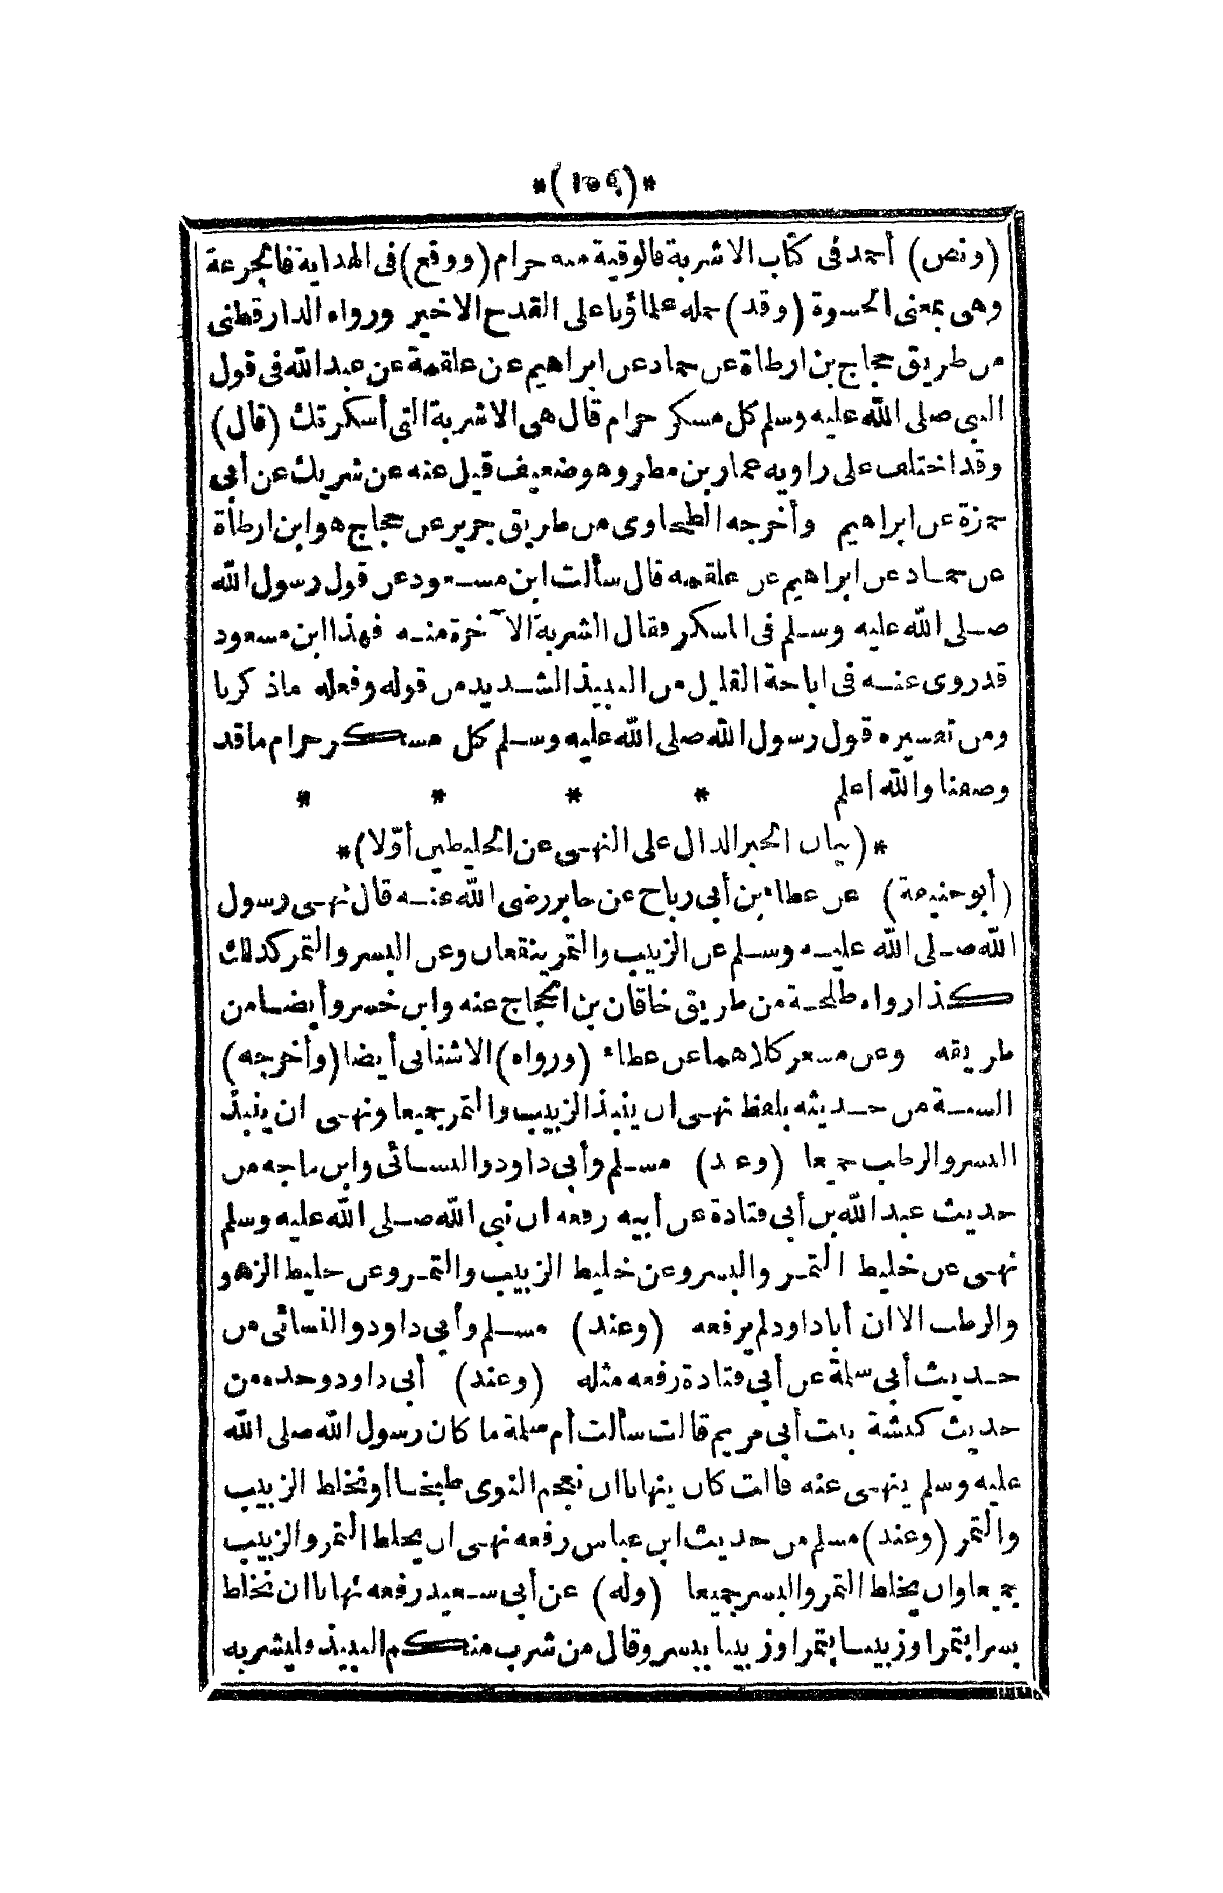 *(١٥٩)*
(ونص) أحمد فى كتاب الاشربة فالوقية منه حرام (ووقع) فى الهداية فالجرعة
وهى بمعنى الحسوة (وقد) حمله علماؤنا على القدح الاخير ورواه الدارقطنى
من طريق حجاج بن ارطاة عن حماد عن ابراهيم عن علقمة عن عبد الله فى قول
النبى صلى الله عليه وسلم كل مسكر حرام قال هى الاشربة التى أسكرتك (قال)
وقد اختلف على راويه عمار بن مطر وهو ضعيف قيل عنه عن شريك عن أبى
حمزة عن ابراهيم وأخرجه الطحاوى من طريق جرير عن حجاج هو ابن ارطأة
عن حماد عن ابراهيم عن علقمه قال سألت ابن مسعود عن قول رسول الله
صلى الله عليه وسلم فى المسكر فقال الشربة الآخرة منه فهذا ابن مسعود
قد روى عنه فى اباحة القليل من النبيذ الشديد من قوله وفعله ماذكرنا
ومن تفسيره قول رسول الله صلى الله عليه وسلم كل مسكر حرام ما قد
وصفنا والله أعلم * * * *
*(بيان الخبر الدال على النهى عن الخليطين أوّلا)*
(أبو حنيفة) عن عطاء بن أبى رباح عن جابر رضى الله عنه قال نهى رسول
الله صلى الله عليه وسلم عن الزبيب والتمر ينقعان وعن البسر والتمر كذلك
كذا رواه طلحة من طريق خاقان بن الحجاج عنه وابن خسرو أيضا من
طريقه وعن مسعر كلاهما عن عطاء (ورواه) الاشنانى أيضا (وأخرجه)
الستة من حديثه بلفظ نهى ان ينبذ الزبيب والتمر جميعا ونهى ان ينبذ
البسر والرطب جميعا (وعند) مسلم وأبى داود والنسائى وابن ماجه من
حديث عبد الله بن أبى قتادة عن أبيه رفعه ان نبى الله صلى الله عليه وسلم
نهى عن خليط التمر والبسر وعن خليط الزبيب والتمر وعن خليط الزهو
والرطب الا ان أبا داود لم يرفعه (وعند) مسلم وأبى داود والنسائى من
حديث أبى سلمة عن أبى قتادة رفعه مثله (وعند) أبى داود وحده من
حديث كبشة بنت أبى مريم قالت سألت أم سلمة ما كان رسول الله صلى الله
عليه وسلم ينهى عنه قالت كان ينهانا ان نعجم النوى طبخا أو نخلط الزبيب
والتمر (وعند) مسلم من حديث ابن عباس رفعه نهى ان يخلط التمر والزبيب
جميعا وان يخلط التمر والبسر جميعا (وله) عن أبى سعيد رفعه نهانا ان نخلط
بسرا بتمر او زبيبا بتمر او زبيبا ببسر وقال من شرب منكم النبيذ فليشربه